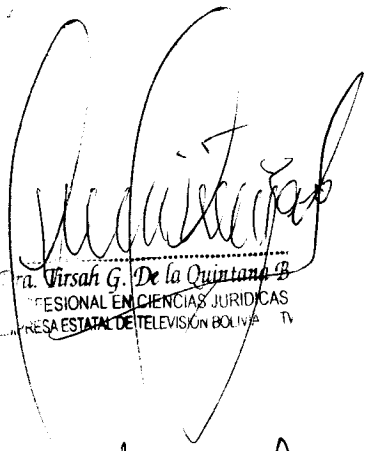 ra. Tirsah G. De la Quintana B
FESIONAL EN CIENCIAS JURIDICAS
RESA ESTATAL DE TELEVISIÓN BOLIVIA TV